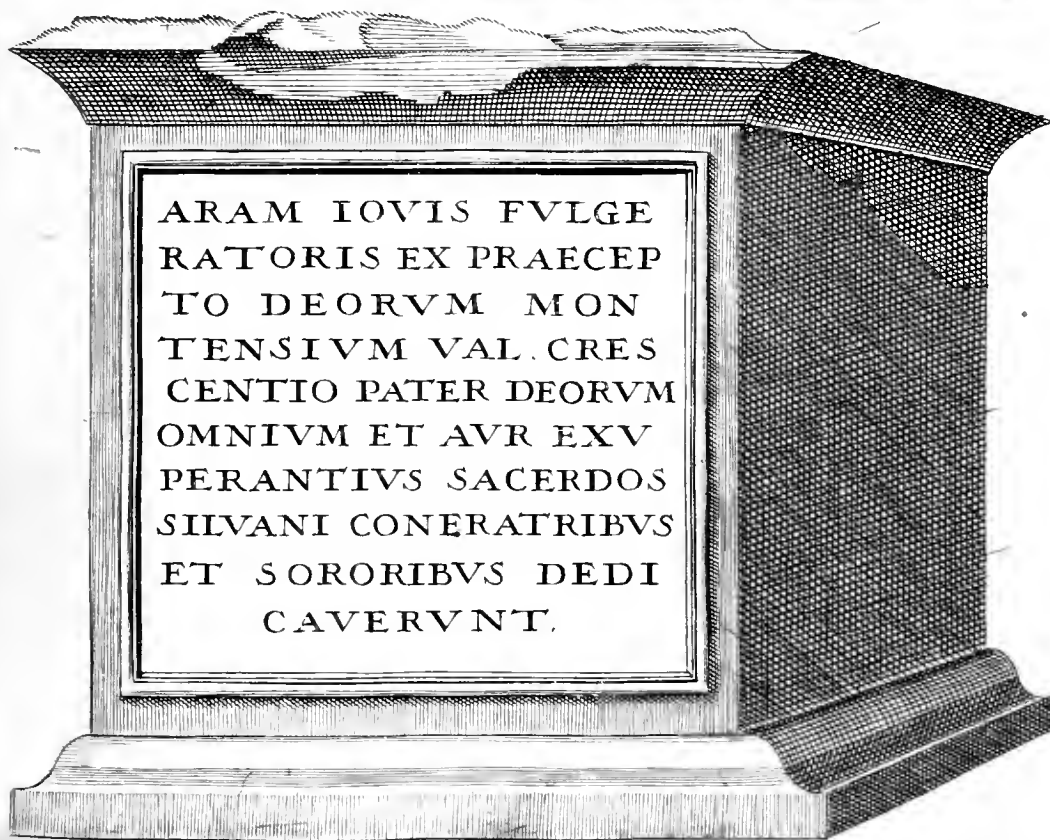 ARAM IOVIS FVLGE
RATORIS EX PRAECEP
TO DEORVM MON
TENSIVM VAL. CRES
CENTIO PATER DEORVM
OMNIVM ET AVR EXV
PERANTIVS SACERDOS
SILVANI CONERATRIBVS
ET SORORIBVS DEDI
CAVERVNT.